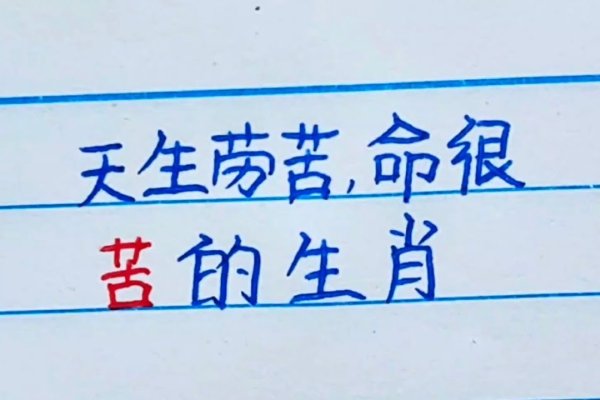 天生劳苦,命很
苦的生肖